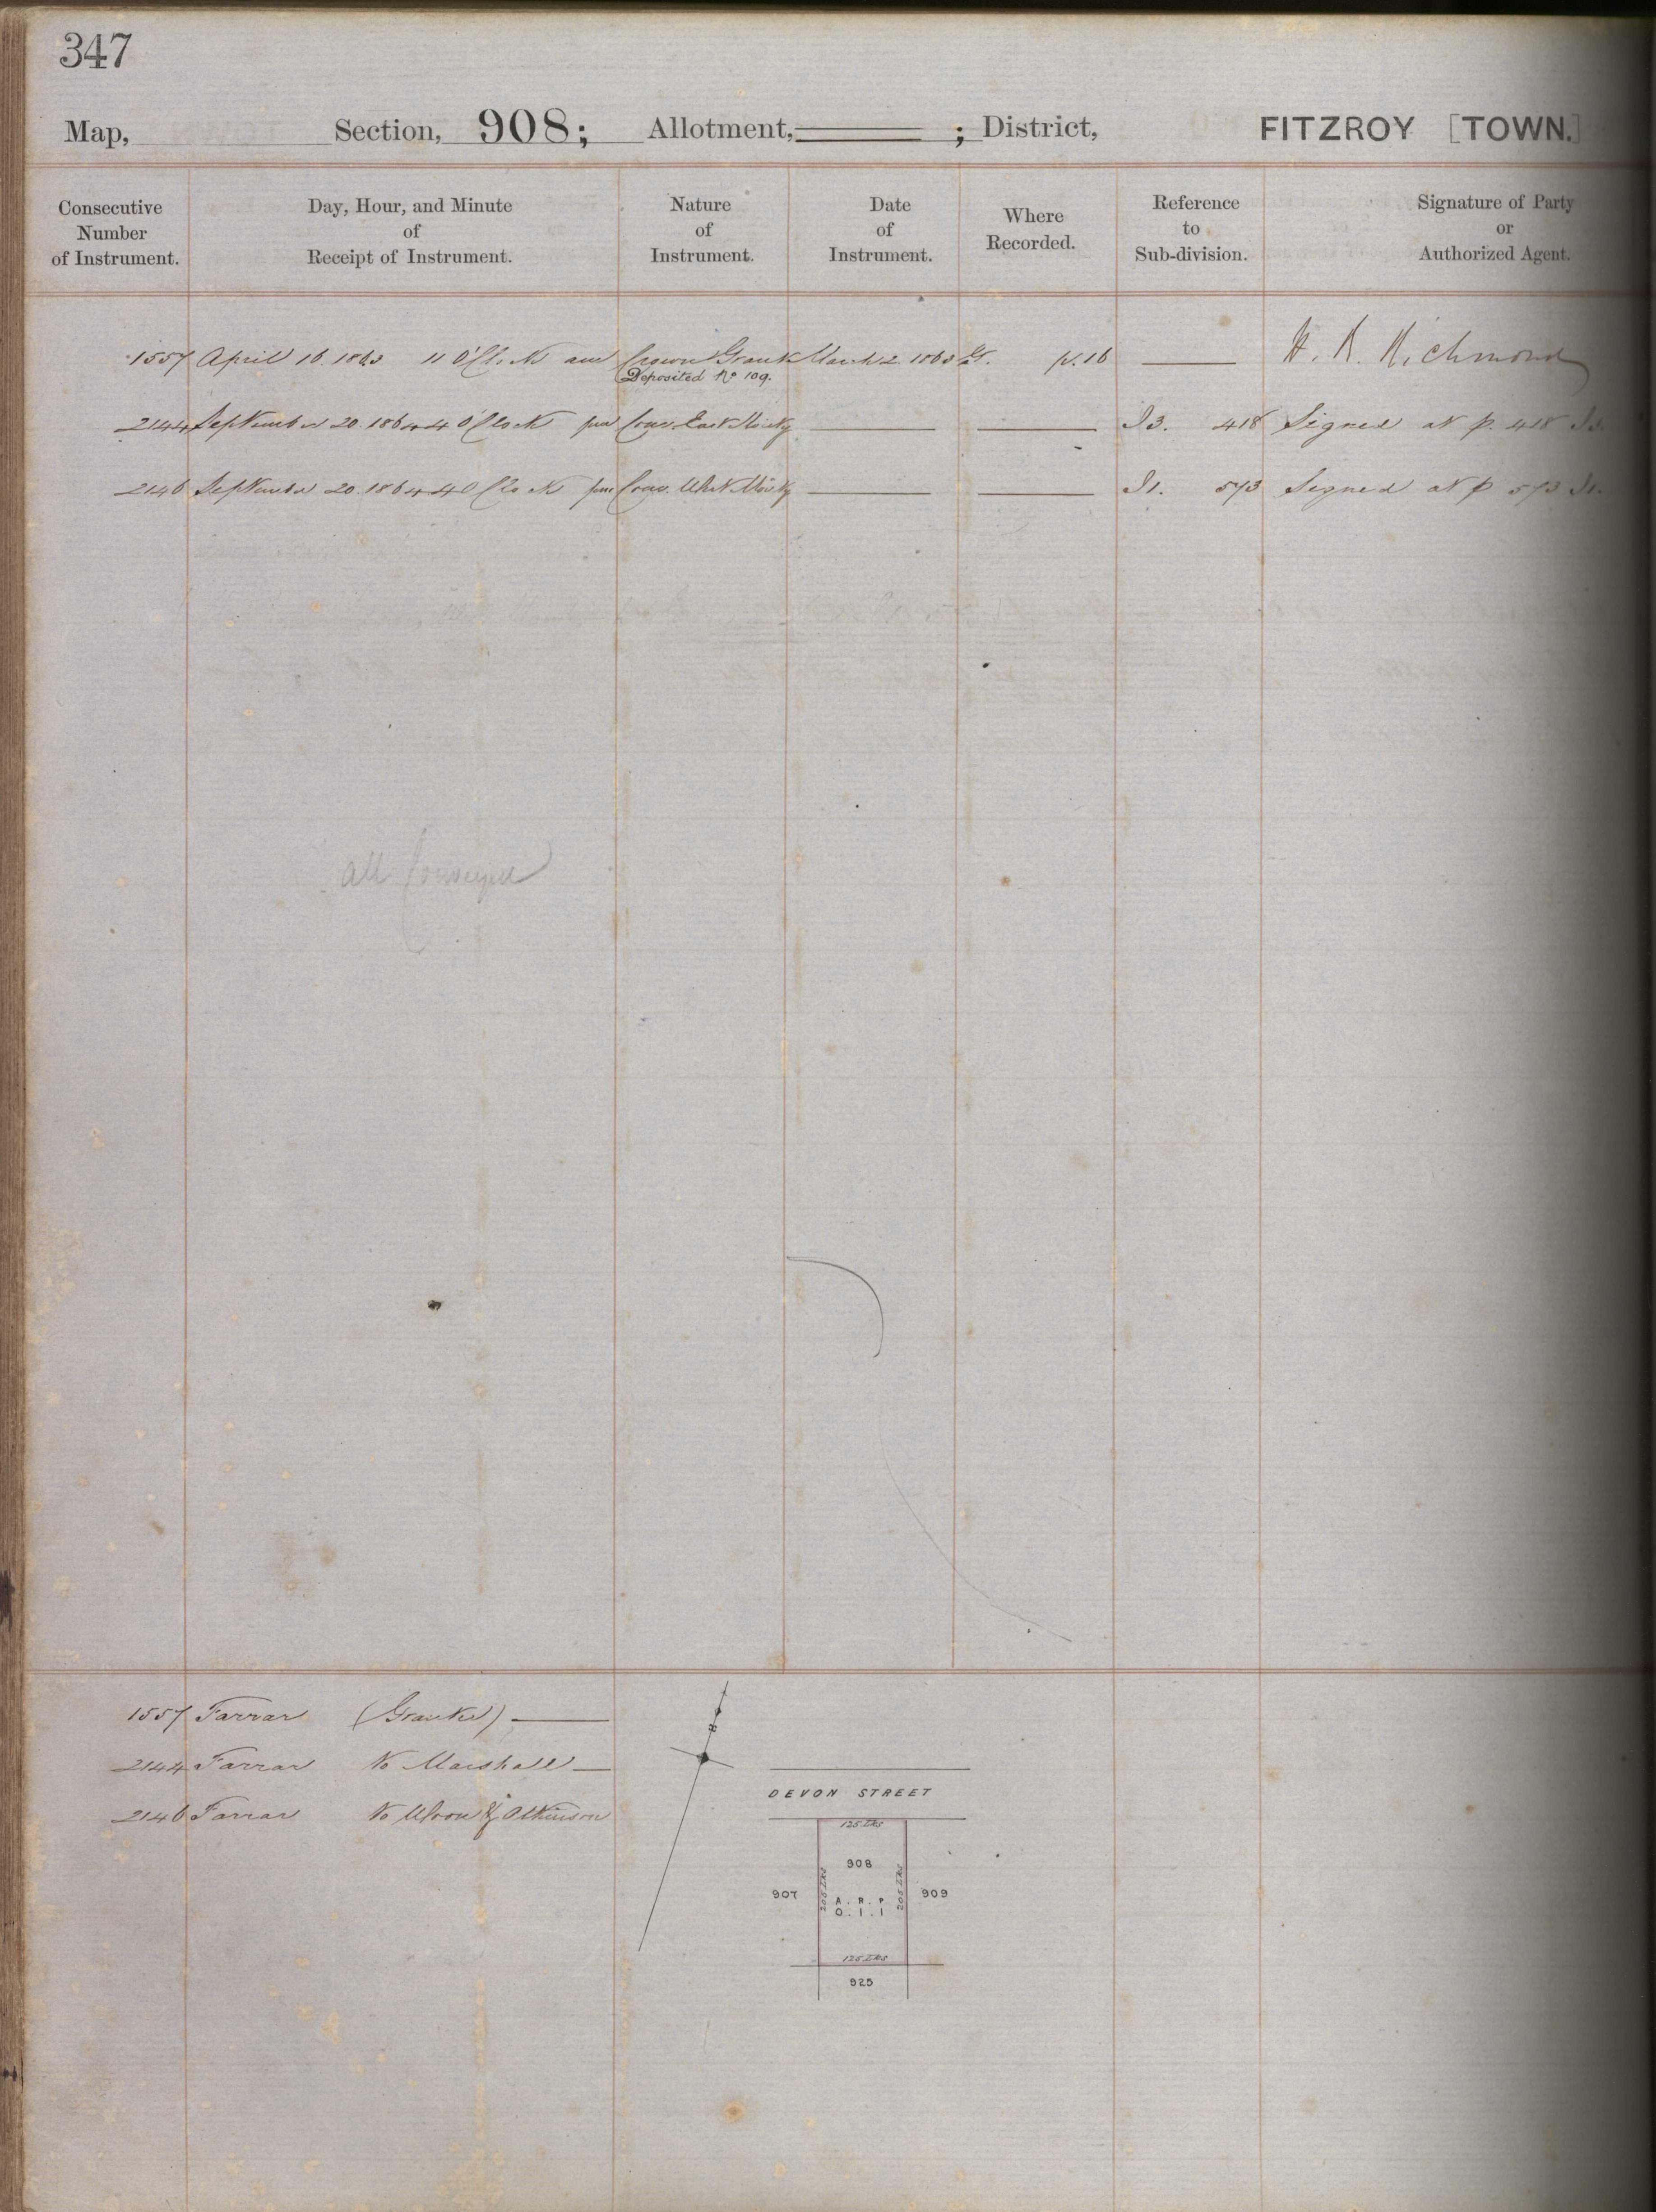 347
Map, Section, 908; Allotment, ; District, FITZROY [TOWN.]
Consecutive Number of Instrument.
Day, Hour, and Minute of Receipt of Instrument.
Nature of Instrument.
Date of Instrument.
Where Recorded.
Reference to Sub-division.
Signature of Party or Authorized Agent.
1557 April 16. 1863 11 O'Clock am Crown Grant March 2 1863 Gr. p. 16 H. R. Richmond
Deposited No 109.
2144 September 20. 1864 4 O'Clock pm Conv. East Moiety I3. 418 Signed at p. 418 I3.
2146 September 20. 1864 4 O'Clock pm Conv. West Moiety I1. 573 Signed at p 573 I1.
all Conveyed
1557 Farrar (Grantee)
2144 Farrar to Marshall
2146 Farrar to & Atkinson
DEVON STREET
125 LKS
908
907
205 LKS
A. R. P
0. 1. 1
205 LKS
909
125 LKS
925